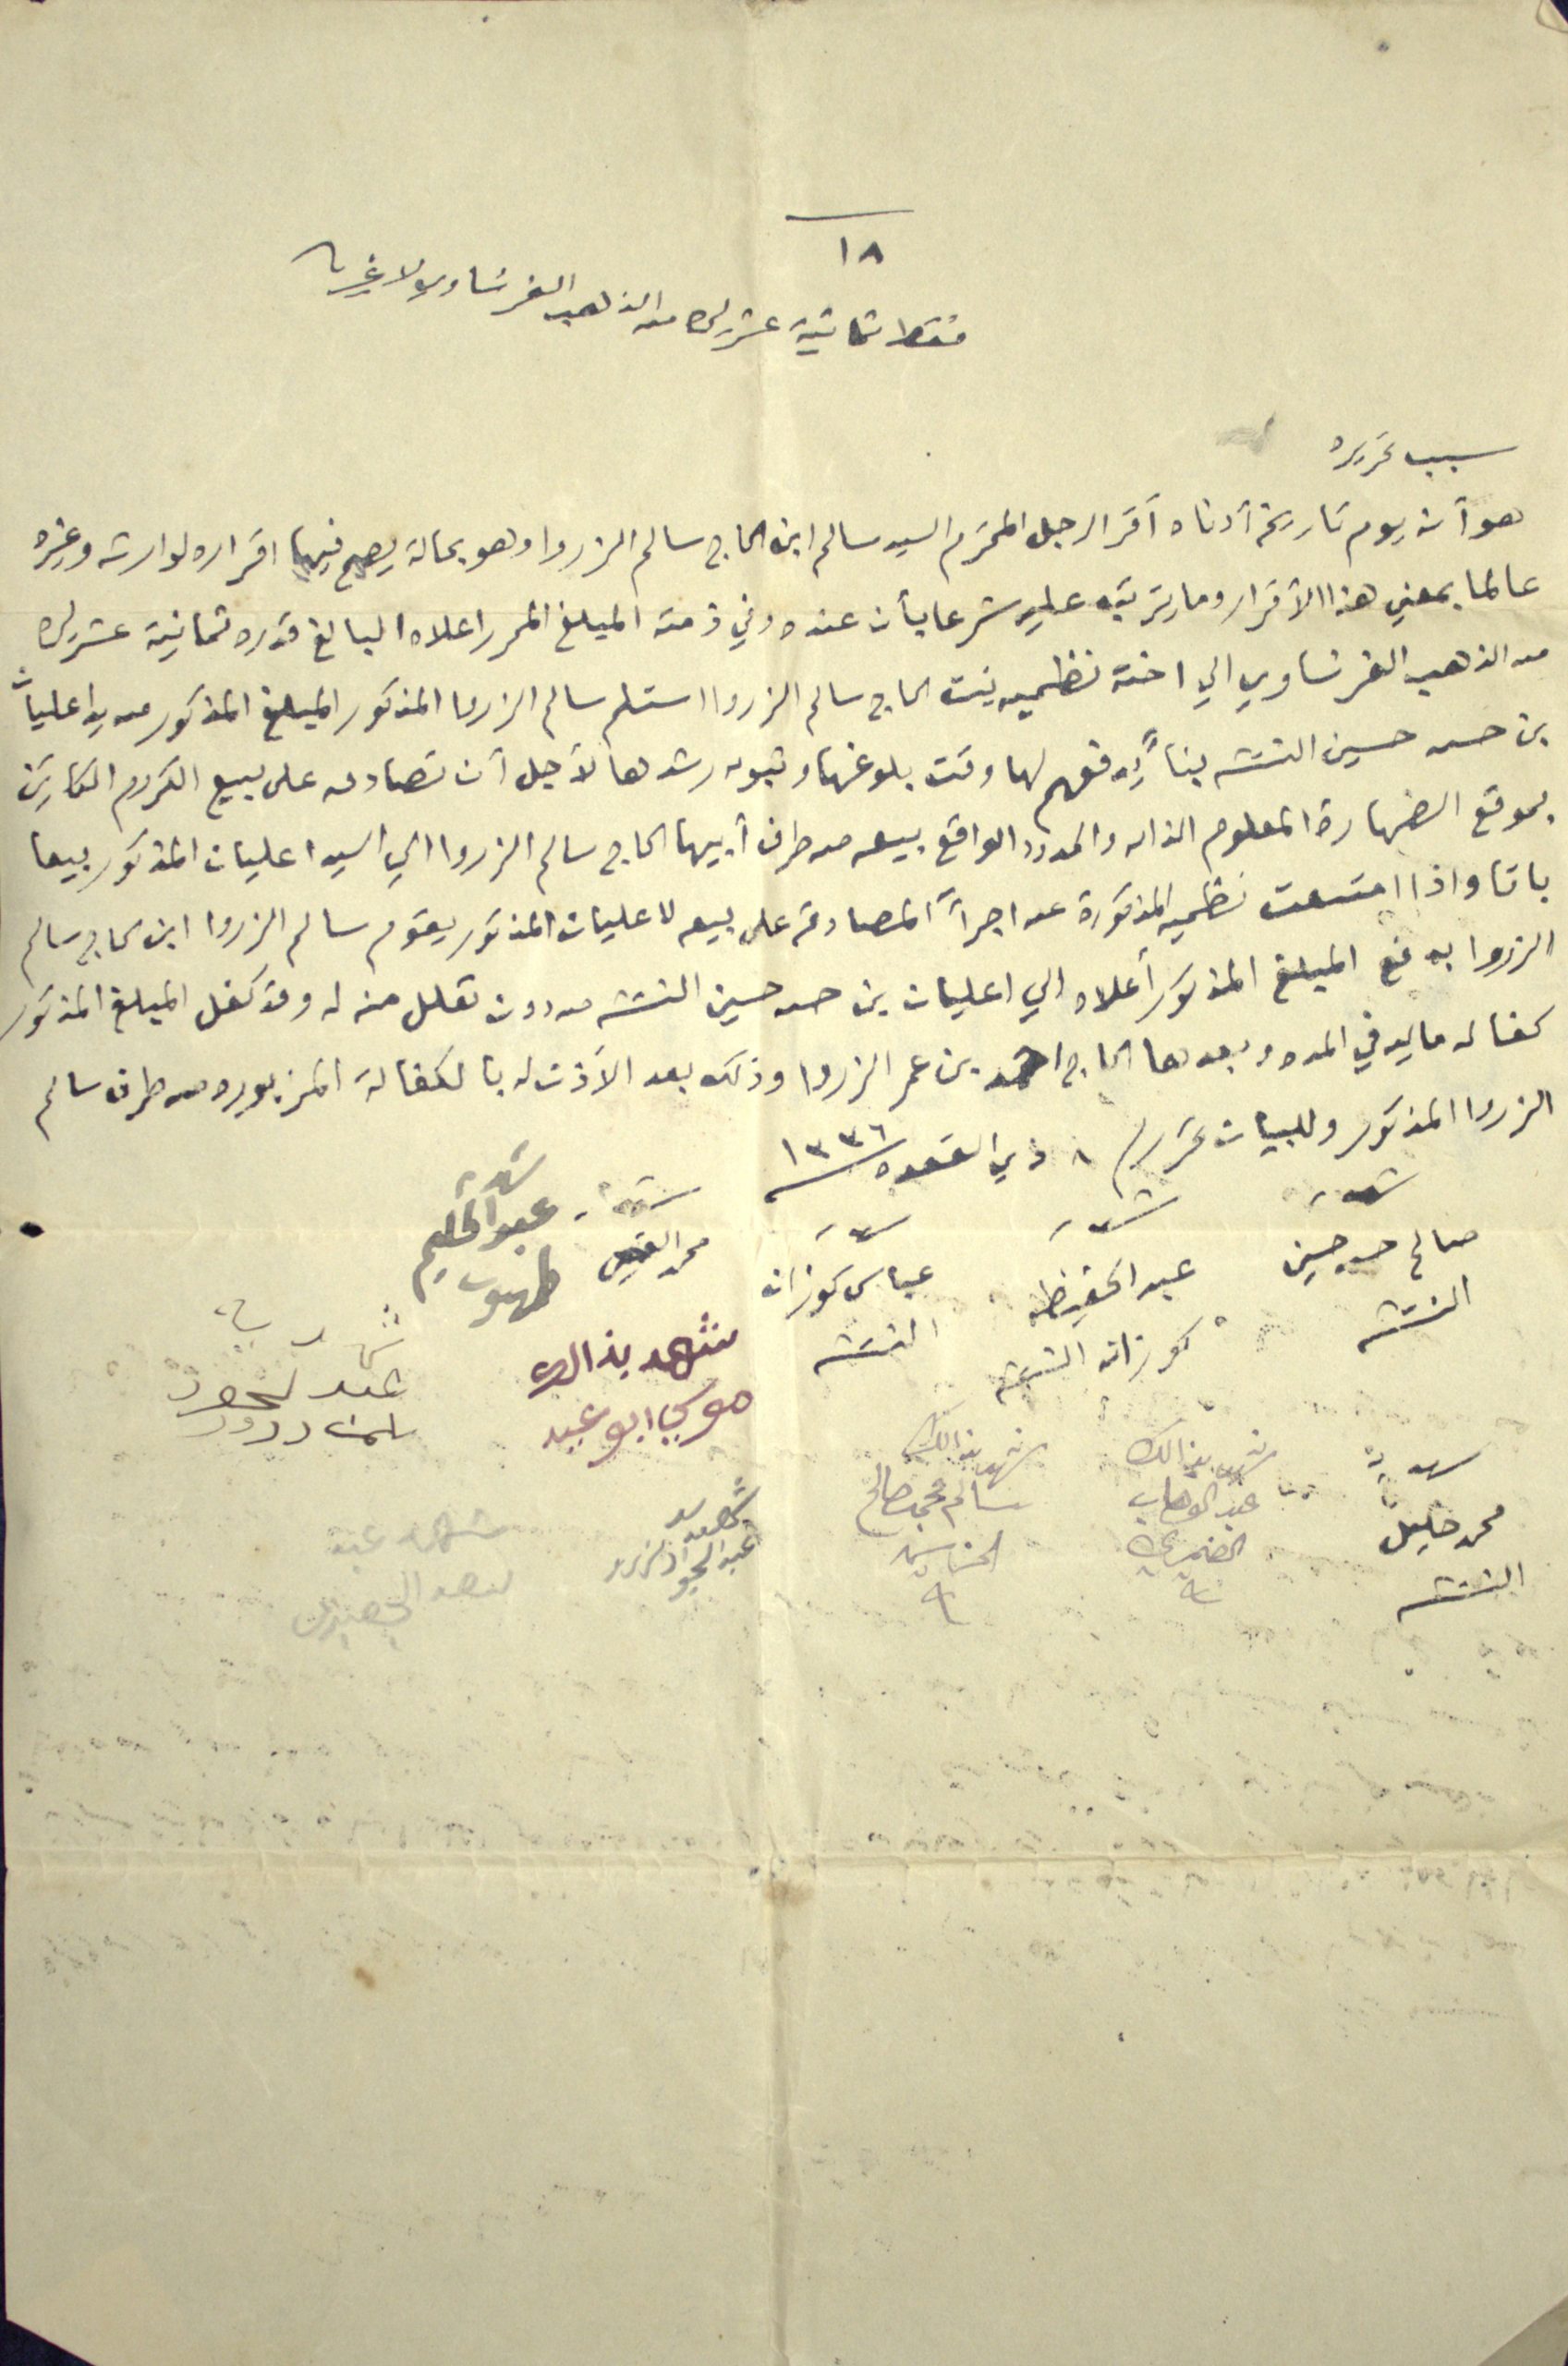 ١٨
فقط ثمانية عشر ليره من الذهب الفرنساوي لا غير
سبب تحريره
هو أنه يوم تاريخه أدناه أقر الرجل المحترم السيد سالم ابن الحاج سالم الزروا وهو بحالة يصح فيها اقراره لوارثه وغيره
عالما بمعني هذا الأقرار وما يترتب عليه شرعا بأن عنده وفي ذمته المبلغ المحرر اعلاه البالغ قدره ثمانية عشر ليره
من الذهب الفرنساوي الي اخته نظميه بنت الحاج سالم الزروا استلم سالم الزروا المذكور المبلغ المذكور من يد اعليان
بن حسن حسين النتشه بناً يدفعهم لها وقت بلوغها وثبوت رشدها لأجل أن تصادق على بيع الكرم الكاين
بموقع الضهارة المعلوم الذات والحدود الواقع بيعه من طرف أبيها الحاج سالم الزروا الي السيد اعليان المذكور بيعا
باتا واذا امتنعت نظميه المذكورة عن اجرآ المصادقه على بيعه لاعليان المذكور يقوم سالم الزروا ابن الحاج سالم
الزروا بدفع المبلغ المذكور أعلاه الي اعليان بن حسن حسين النتشه من دون تعلل منه له وقد كفل المبلغ المذكور
كفاله ماليه في المده وبعدها الحاج احمد بن عمر الزروا وذلك بعد الأذن له بالكفالة المزبوره من طرف سالم
الزروا المذكور وللبيان تحرر ٨ ذي القعده ١٣٣٦
شهد
صالح حسن حسين
النتشه
شهد
عبد الحفيظ
كوزان النتشه
شهد
عباس كوزان
النتشه
شهد
محمد
شهد
عبد الحليم
طهبوب
شهد بذالك
موسى ابو عبيد
شهد
عبد
شهد
محمد خليل
النتشه
شهد بذالك
عبد الوهاب
شهد بذالك
سالم محمد صالح
شهد
عبد الجواد
شهد